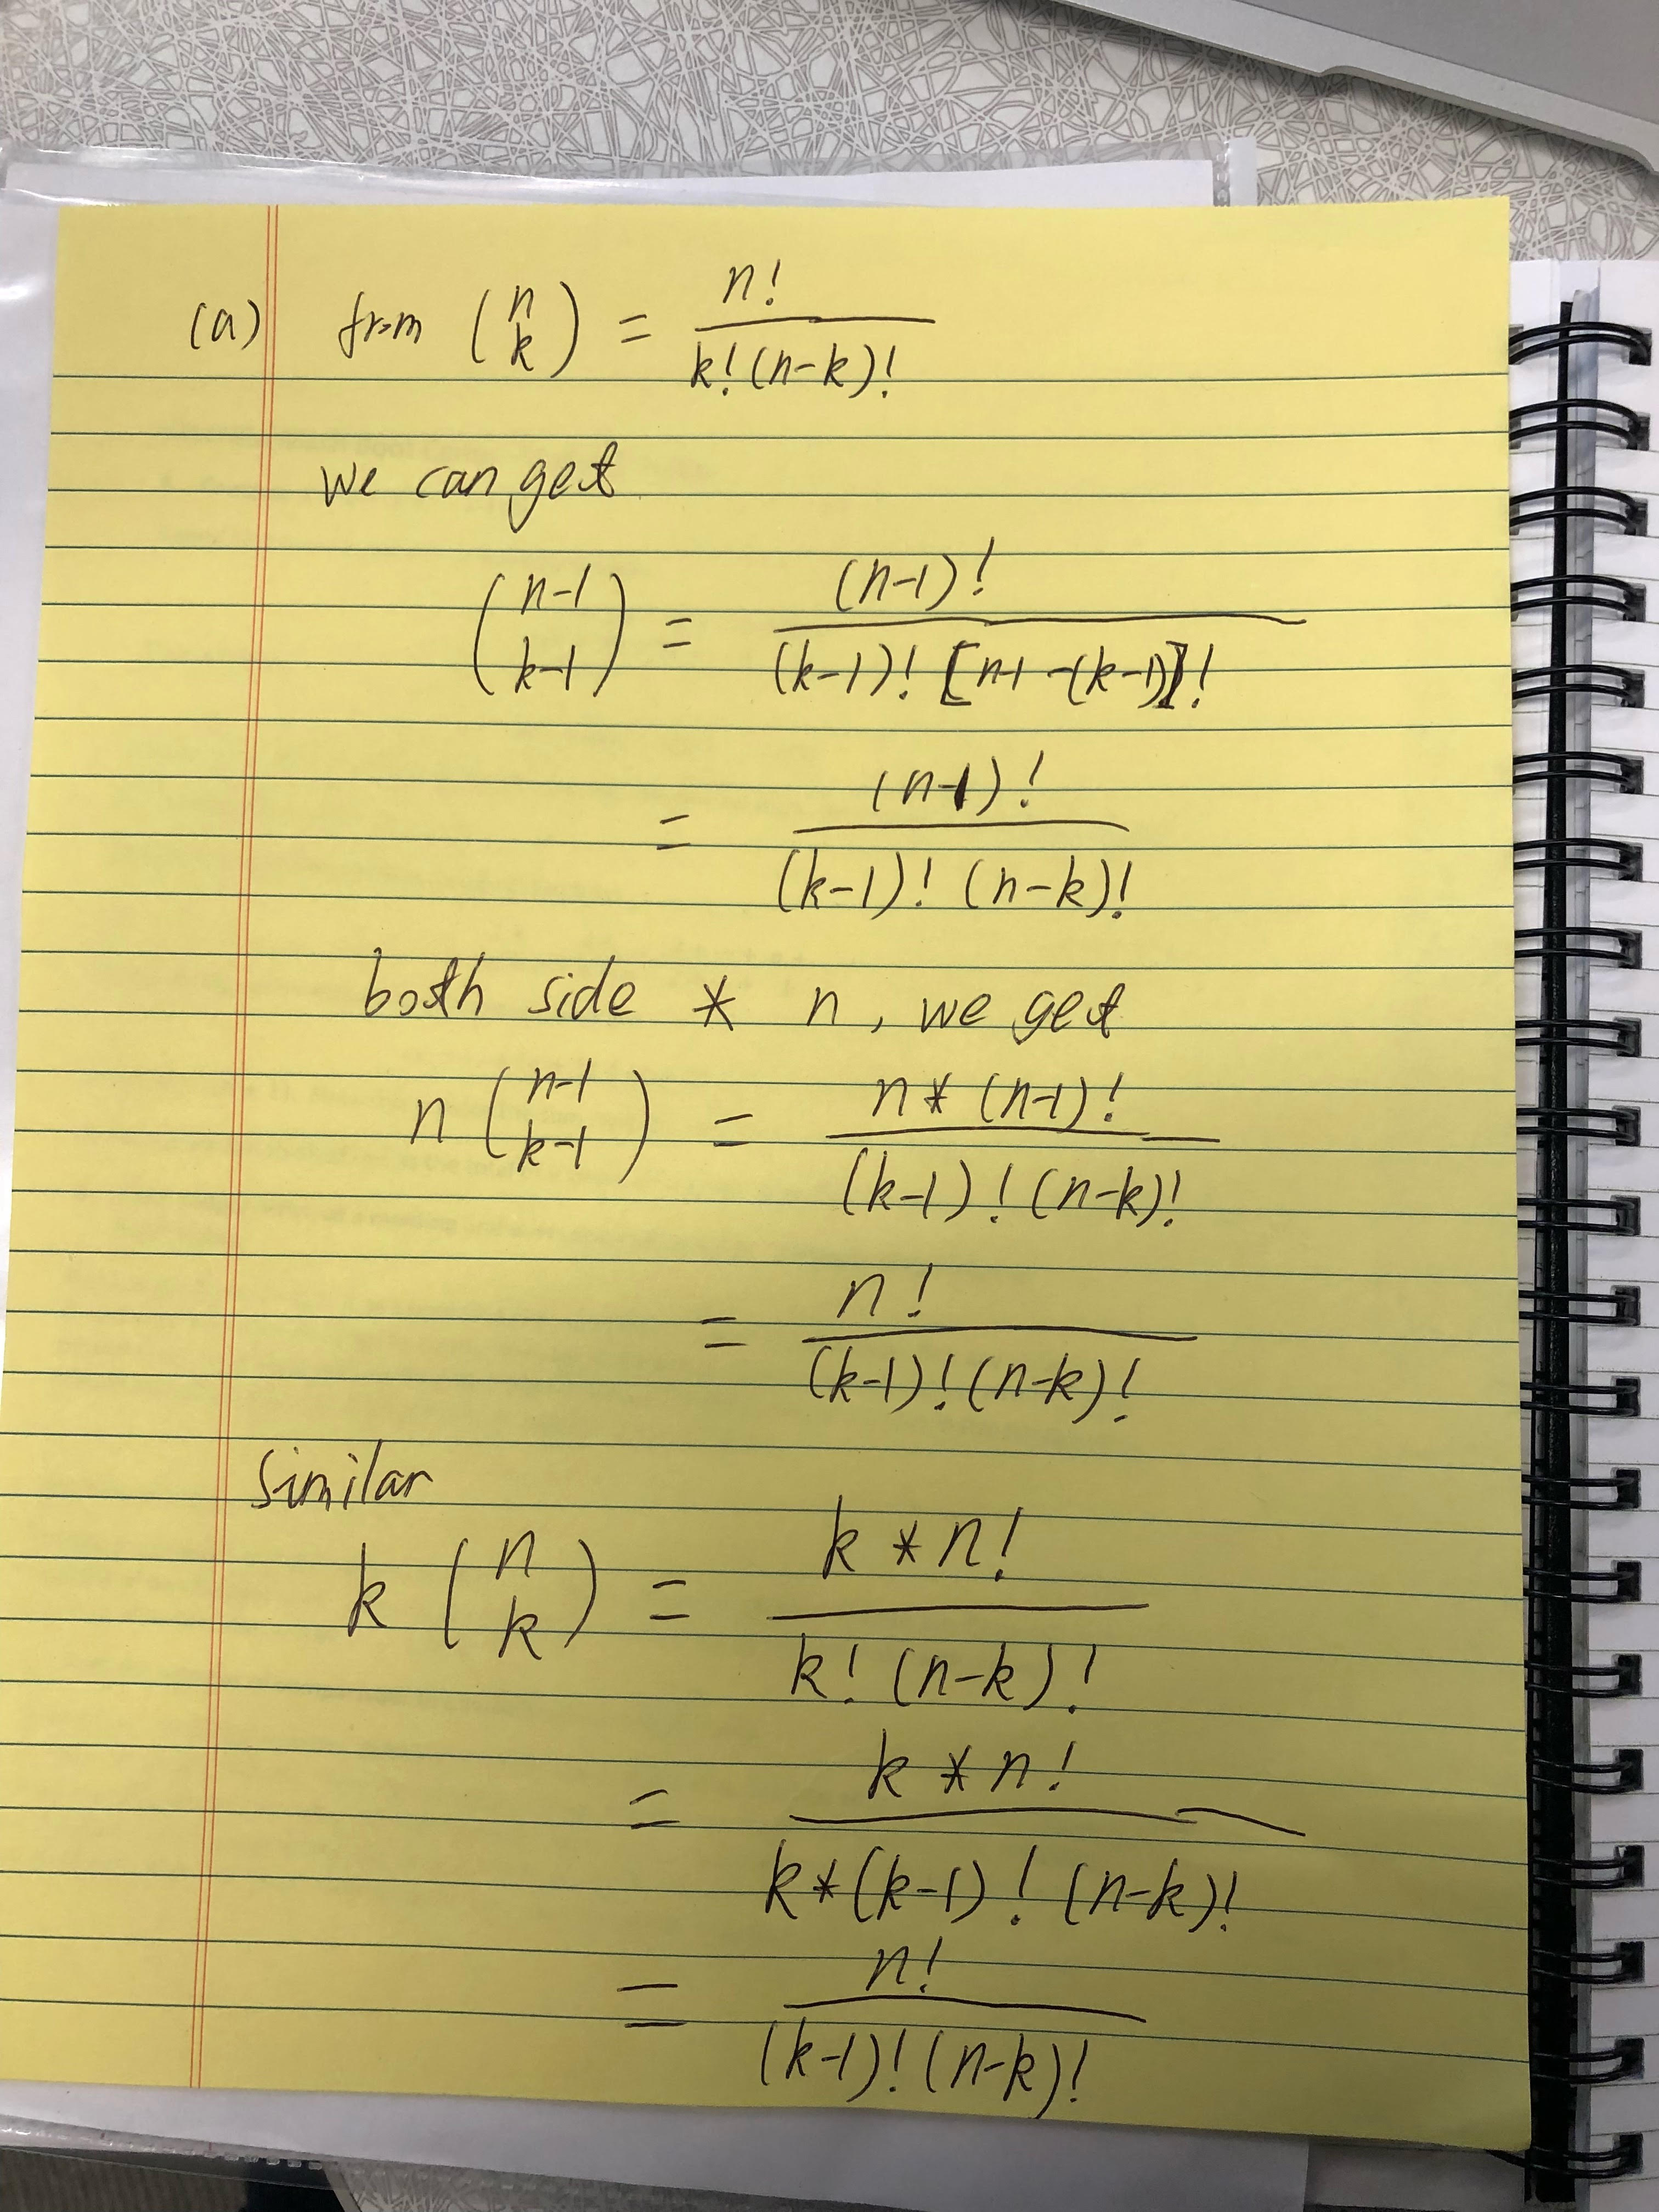 (a) from (n k) = n! / k!(n-k)!
we can get
(n-1 k-1) = (n-1)! / (k-1)! [n-1-(k-1)]!
= (n-1)! / (k-1)! (n-k)!
both side * n, we get
n (n-1 k-1) = n * (n-1)! / (k-1)! (n-k)!
= n! / (k-1)! (n-k)!
similar
k (n k) = k * n! / k! (n-k)!
= k * n! / k*(k-1)! (n-k)!
= n! / (k-1)! (n-k)!